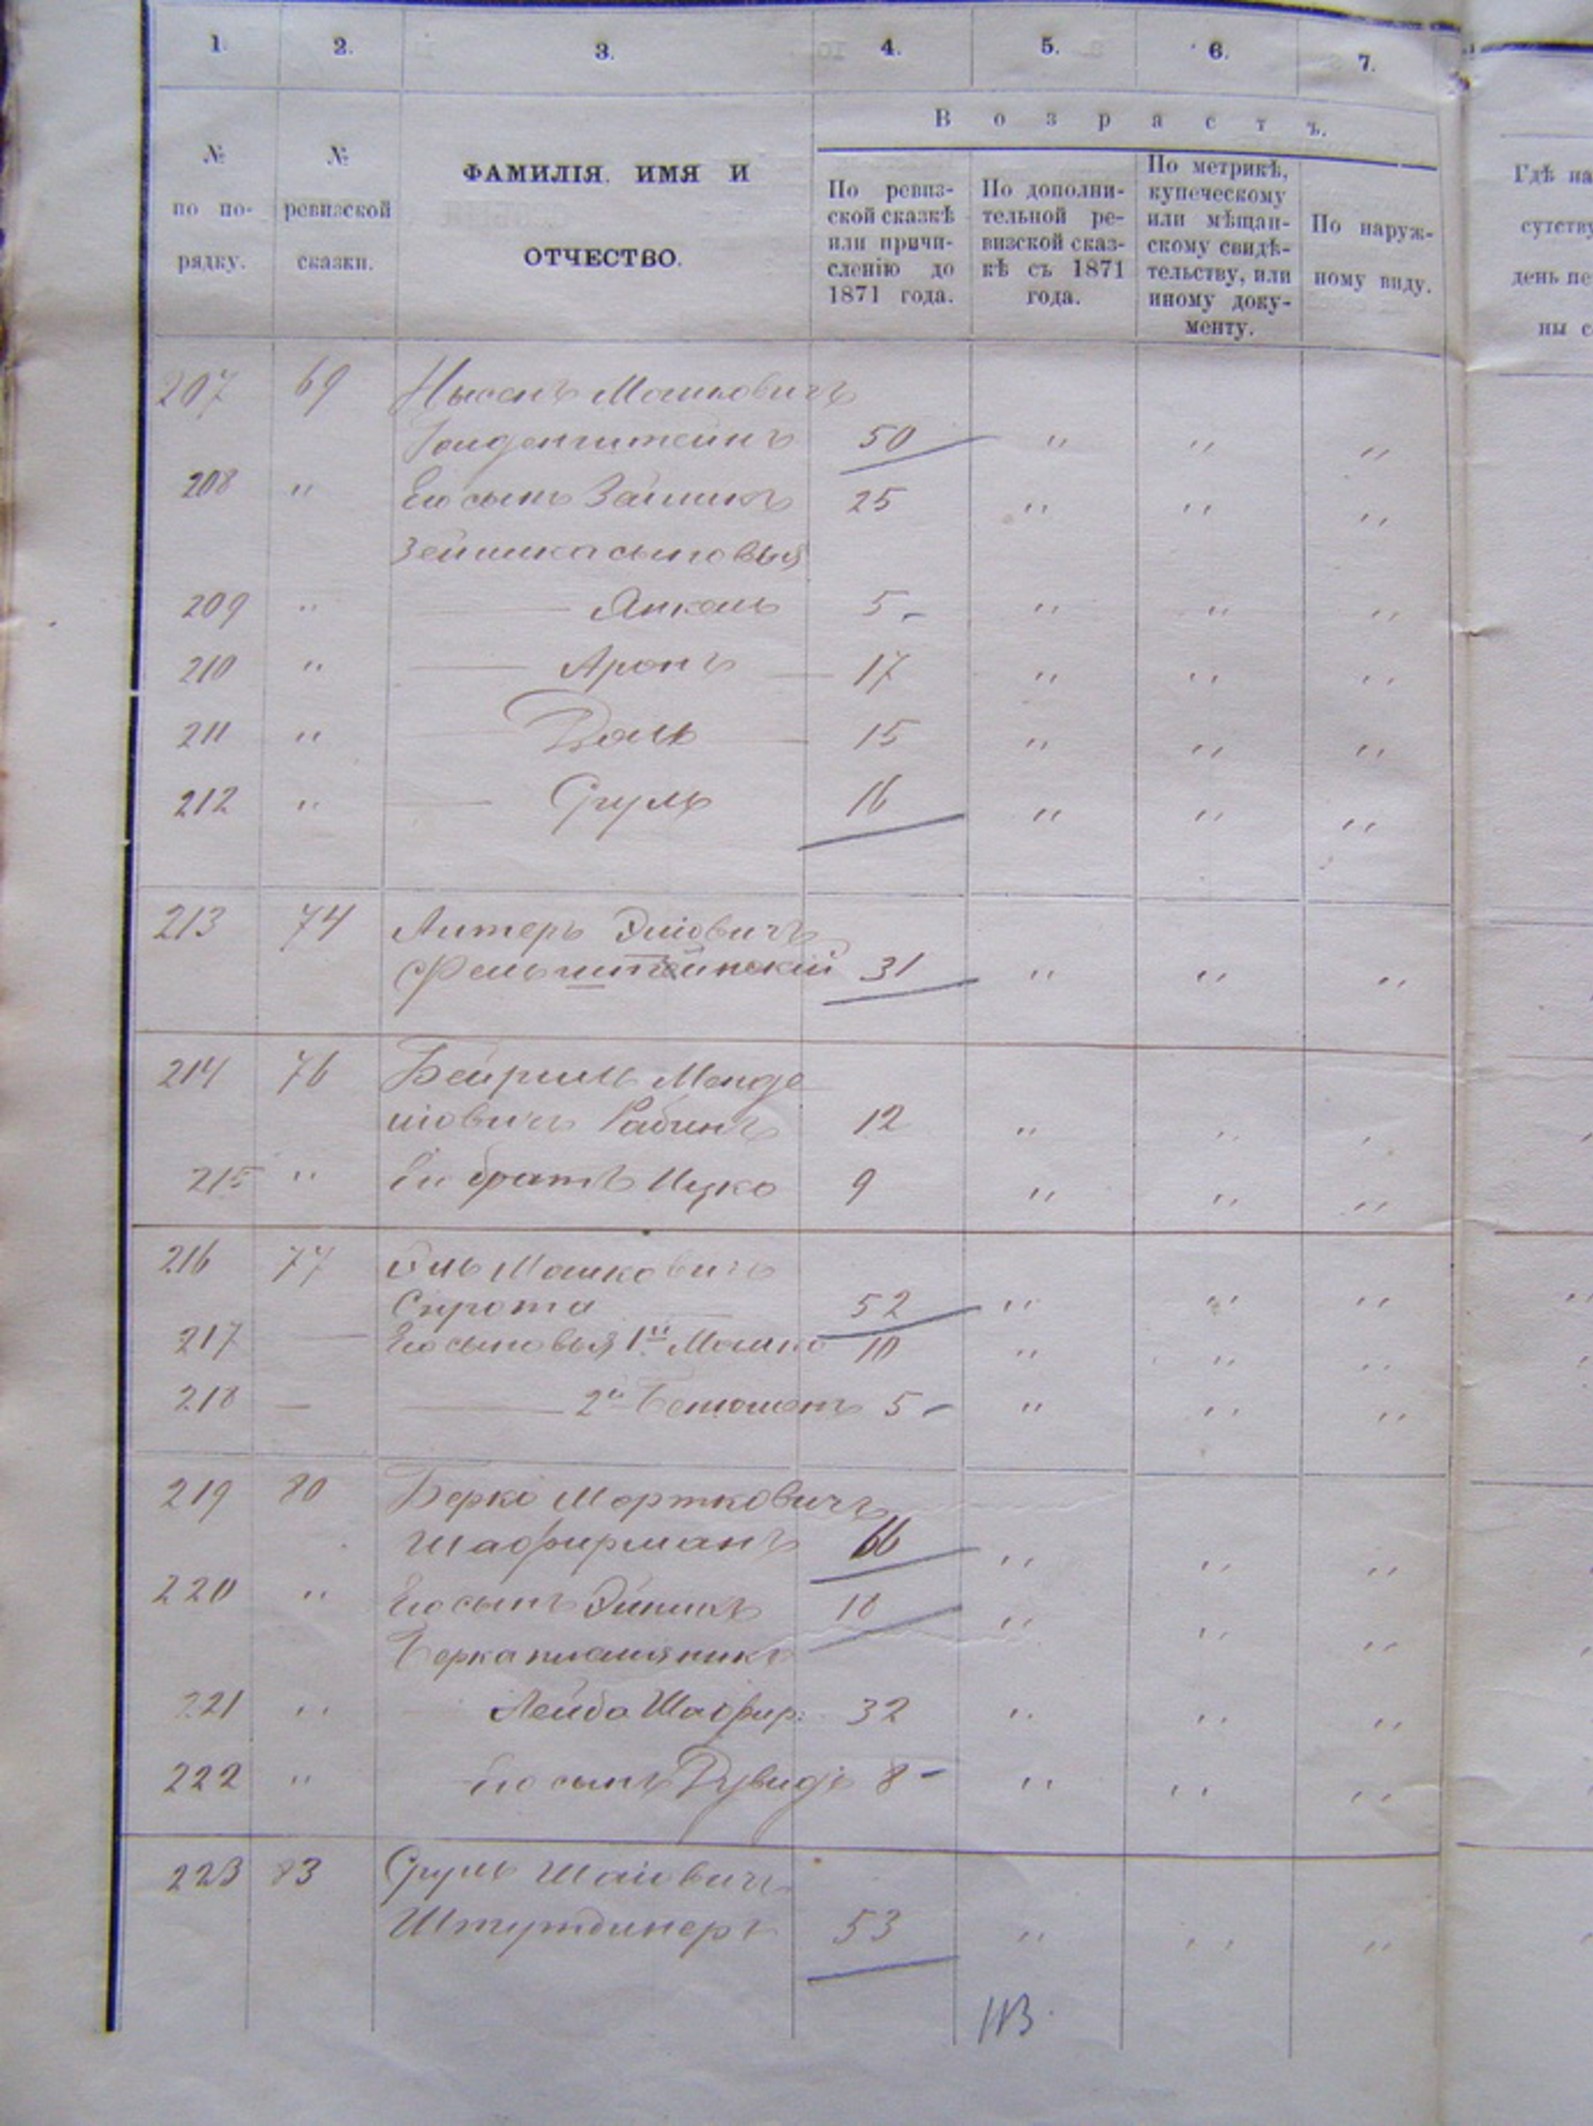 1. 2. 3. 4. 5. 6. 7.
В о з р а с т ъ.
№ по по-рядку.
№ ревизской сказки.
ФАМИЛІЯ. ИМЯ И
ОТЧЕСТВО.
По ревиз-
ской сказкѣ
или причи-
сленію до
1871 года.
По дополни-
тельной ре-
визской сказ-
кѣ съ 1871
года.
По метрикѣ,
купеческому
или мѣщан-
скому свидѣ-
тельству, или
иному доку-
менту.
По наруж-
ному виду.
Гдѣ на
сутству
день пе
ны с
207 69 Нысенъ Мошковичъ
Гольденштейнъ 50 " " "
208 " Его сынъ Зейликъ 25 " " "
сыновья
209 " Янкель 5 " " "
210 " Аронъ 17 " " "
211 " 15 " " "
212 " Сруль 16 " " "
213 74 Литеръ
Фельштейнскій 31 " " "
214 76 Менде
ліовичъ Рабинъ 12 " " "
215 " Его братъ Ицко 9 " " "
216 77 Мошковичъ
Сирота 52 " " "
217 — Его сыновья 1й Мошко 10 " " "
218 — 2й 5 " " "
219 80 Берко Мортковичъ
Шафирманъ 66 " " "
220 " Его сынъ 18 " " "
Берка племянникъ
221 " Лейба Шафир: 32 " " "
222 " Его сынъ Дувидъ 8 " " "
223 83 Сруль Шаіовичъ
53 " " "